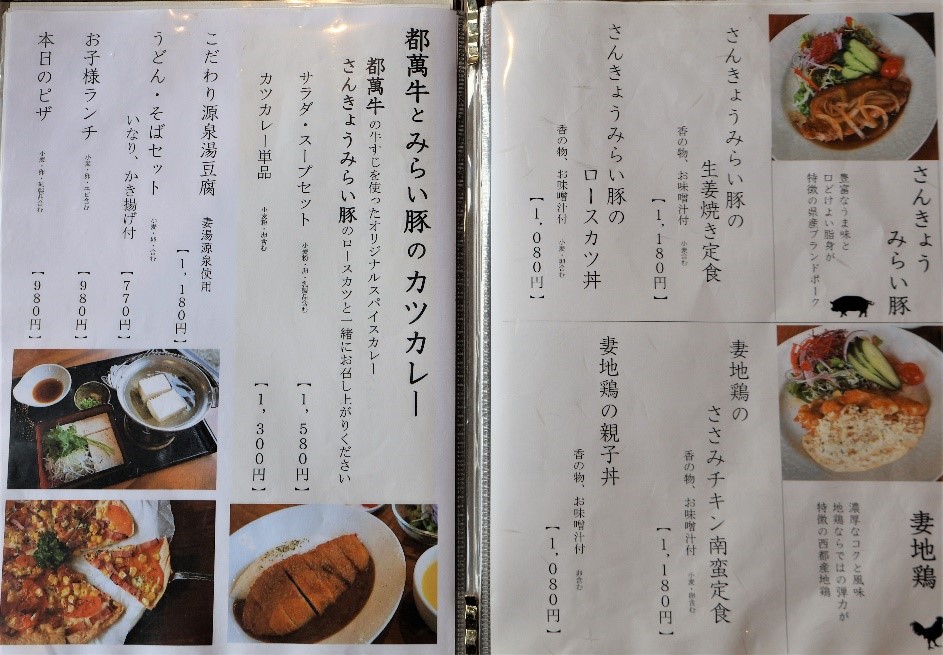 さんきょう
みらい豚
豊富なうま味と
口どけよい脂身が
特徴の県産ブランドポーク
さんきょうみらい豚の
生姜焼き定食
香の物、お味噌汁付
小麦含む
【1,180円】
さんきょうみらい豚の
ロースカツ丼
香の物、お味噌汁付
小麦・卵含む
【1,080円】
妻地鶏
濃厚なコクと風味
地鶏ならではの弾力が
特徴の西都産地鶏
妻地鶏の
ささみチキン南蛮定食
香の物、お味噌汁付
小麦・卵含む
【1,180円】
妻地鶏の親子丼
香の物、お味噌汁付
卵含む
【1,080円】
都萬牛とみらい豚のカツカレー
都萬牛の牛すじを使ったオリジナルスパイスカレー
さんきょうみらい豚のロースカツと一緒にお召し上がりください
サラダ・スープセット
【1,580円】
カツカレー単品
【1,300円】
こだわり源泉湯豆腐
妻湯源泉使用
【1,180円】
うどん・そばセット
いなり、かき揚げ付
【770円】
お子様ランチ
【980円】
本日のピザ
【980円】